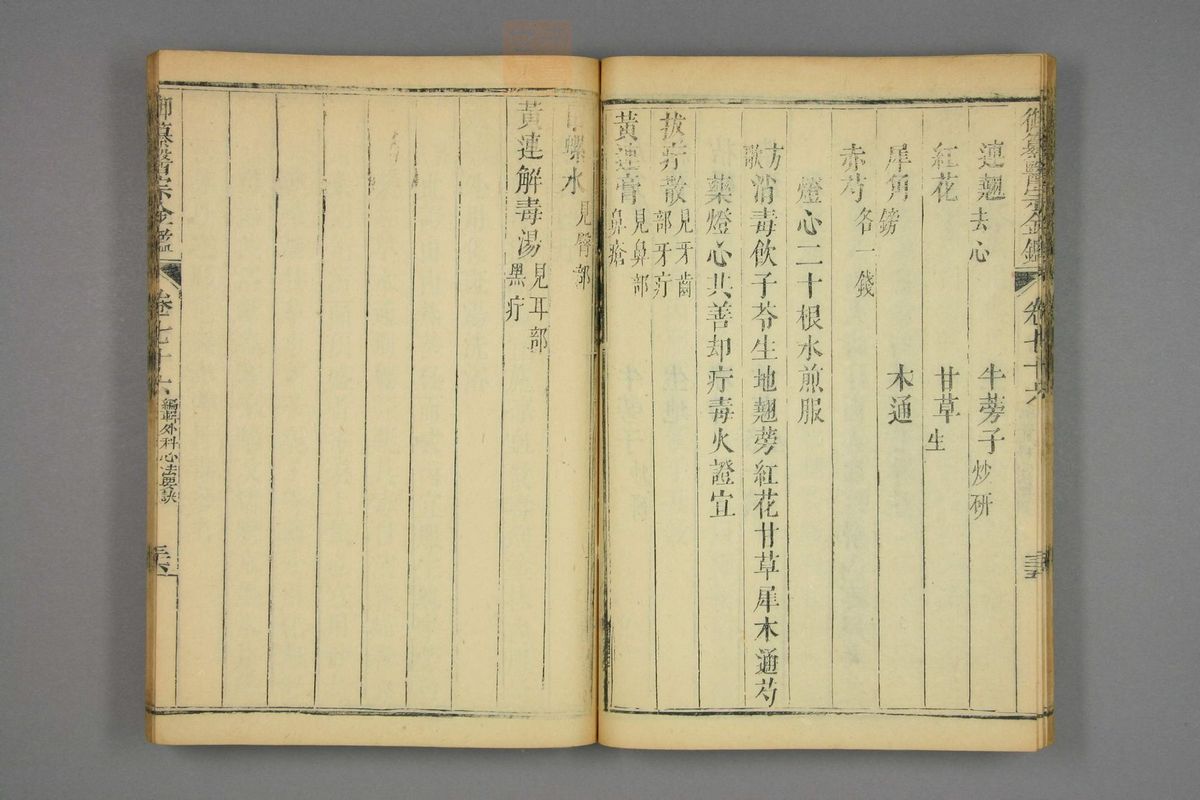 御纂醫宗金鑑 卷七十六
連翹去心 牛蒡子炒研
紅花 甘草生
犀角鎊 木通
赤芍各一錢
燈心二十根水煎服
方歌 消毒飲子苓生地翹蒡紅花甘草犀木通芍
藥燈心共善却疔毒火證宜
拔疔散見牙齒部牙疔
黃連膏見鼻部鼻瘡
螺水見臀部
黃連解毒湯見耳部黑疔
御纂醫宗金鑑 卷七十六 編輯外科心法要訣